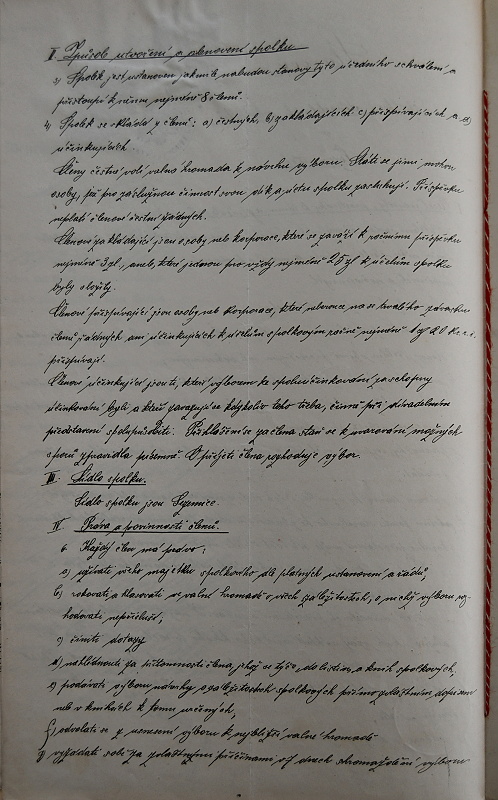 II Způsob utvoření a obnovení spolku
3) Spolek jest ustanoven jakmile nabudou stanovy tyto úředního schválení a
přistoupí k němu nejméně 8 členů.
4) Spolek se skládá z členů: a) čestných, b) zakládajících c) přispívajících a d)
účinkujících.
Členy čestné volí valná hromada k návrhu výboru. Státi se jimi mohou
osoby, jež pro záslužnou činnost svou dík a úctu spolku zasluhují. Příspěvku
neplatí členové čestní žádných.
Členové zakládající jsou osoby neb korporace, které se zaváží k ročnímu příspěvku
nejméně 3 zl., aneb, které jednou pro vždy nejméně 25 zl k účelům spolku
byly složily.
Členové přispívající jsou osoby neb korporace, které neberouce na se trvalého závazku
členů jiných ani účinkujících k účelům spolkovým ročně nejméně 1 zl 20 kr. r. č.
přispívají.
Členové účinkující jsou ti, kteří výborem ke spoluúčinkování za schopny
účinkování byli a kteří zavazují se kdykoliv toho třeba, činně při divadelním
představení spolupůsobiti. Přihlášení se za člena staň se k uvarování možných
sporů zpravidla písemně. O přijetí člena rozhoduje výbor.
III. Sídlo spolku.
Sídlo spolku jsou Sezemice.
IV. Práva a povinnosti členů.
6. Každý člen má právo:
a) užívati všeho majetku spolkového dle platných ustanovení a řádů,
b) rokovati a hlasovati ve valné hromadě o všech záležitostech, o nichž výboru roz-
hodovati nepřísluší,
c) činiti dotazy
d) nahlédnouti za přítomnosti člena, jehož se týče, do listin a knih spolkových,
e) podávati výboru návrhy o záležitostech spolkových přímo zvláštním dopisem
neb v knihách k tomu určených,
f) odvolati se z usnesení výboru k nejbližší valné hromadě
g) vyžádati sobě za zvláštními příčinami od dvou shromáždění výboru